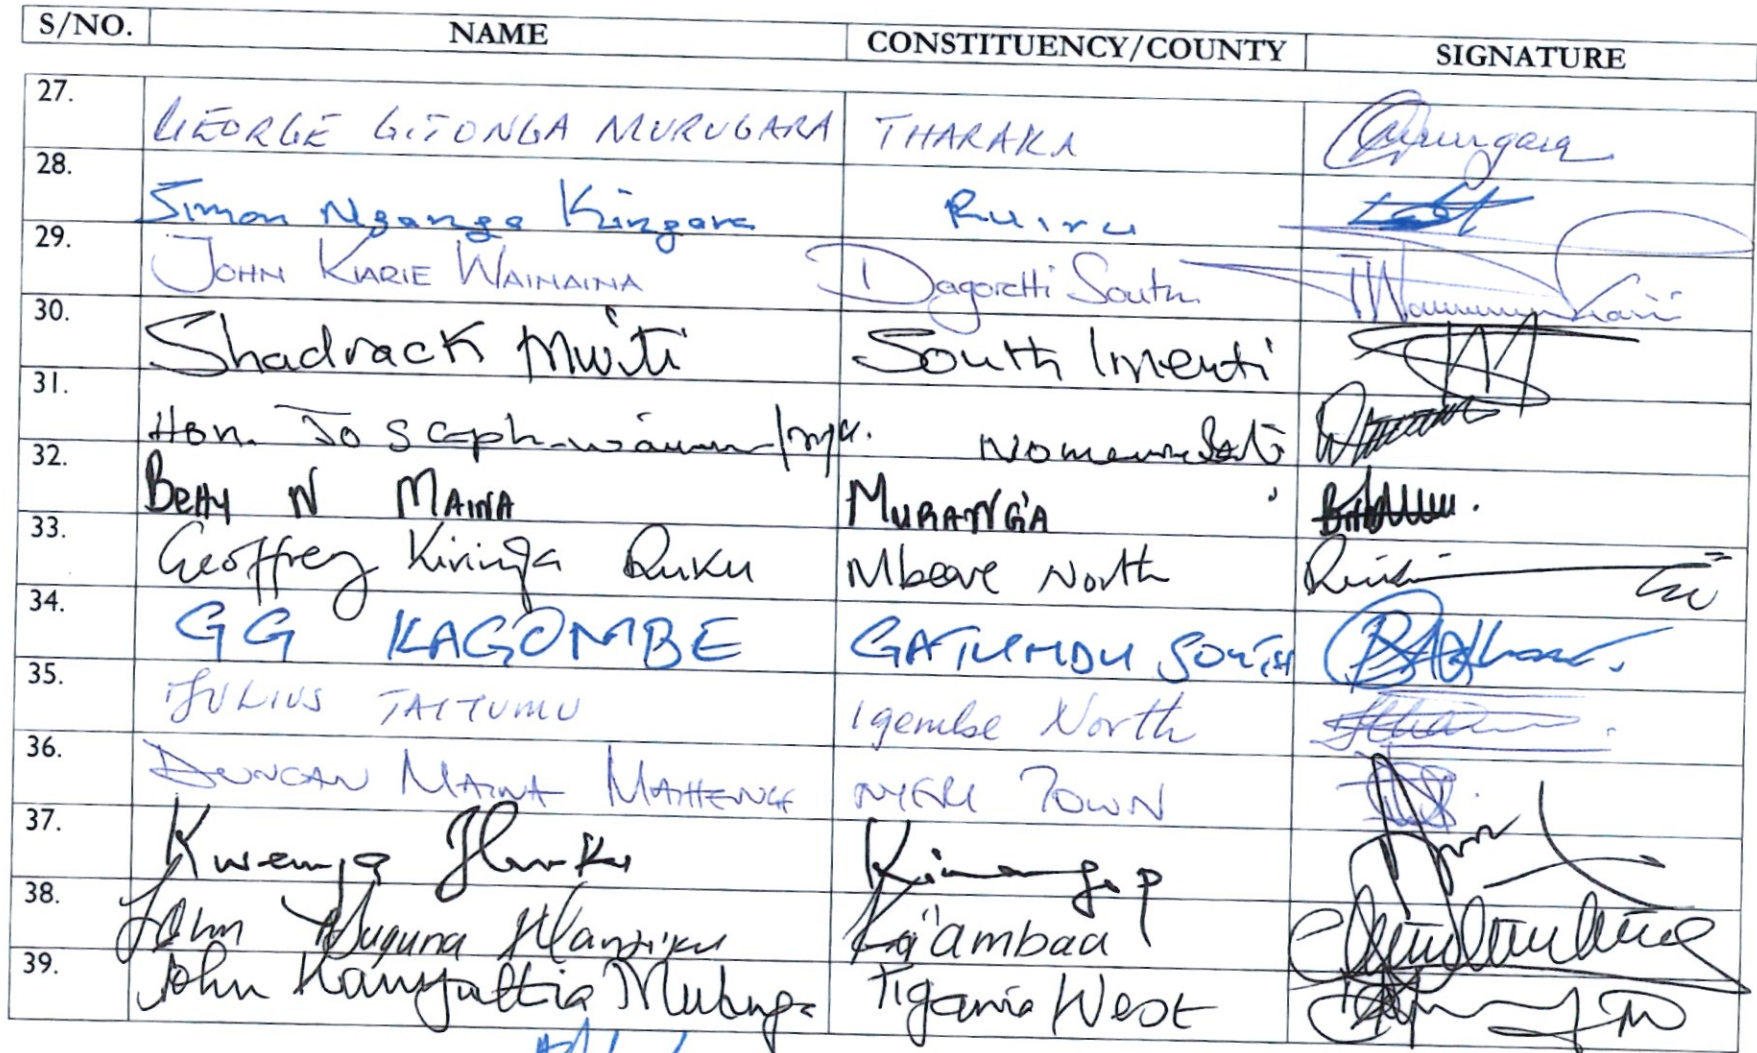 S/NO. NAME CONSTITUENCY/COUNTY SIGNATURE
27. GEORGE GITONGA MURUGARA THARAKA
28. Simon Nganga Kingara Ruiru
29. JOHN KIARIE WAINAINA Dagoretti South
30. Shadrack Mwiti South Imenti
31. Hon. Joseph
32. Betty N MAINA MURANG'A
33. Geoffrey Kiringa Ruku Mbeere North
34. GG KAGOMBE GATUNDU SOUTH
35. JULIUS TAITUMU Igembe North
36. DUNCAN MAINA MATHENGE NYERI TOWN
37. Kwenya Kinangop
38. John Njuguna Wanjiku Kiambaa
39. John Kanyuithia Mutunga Tigania West